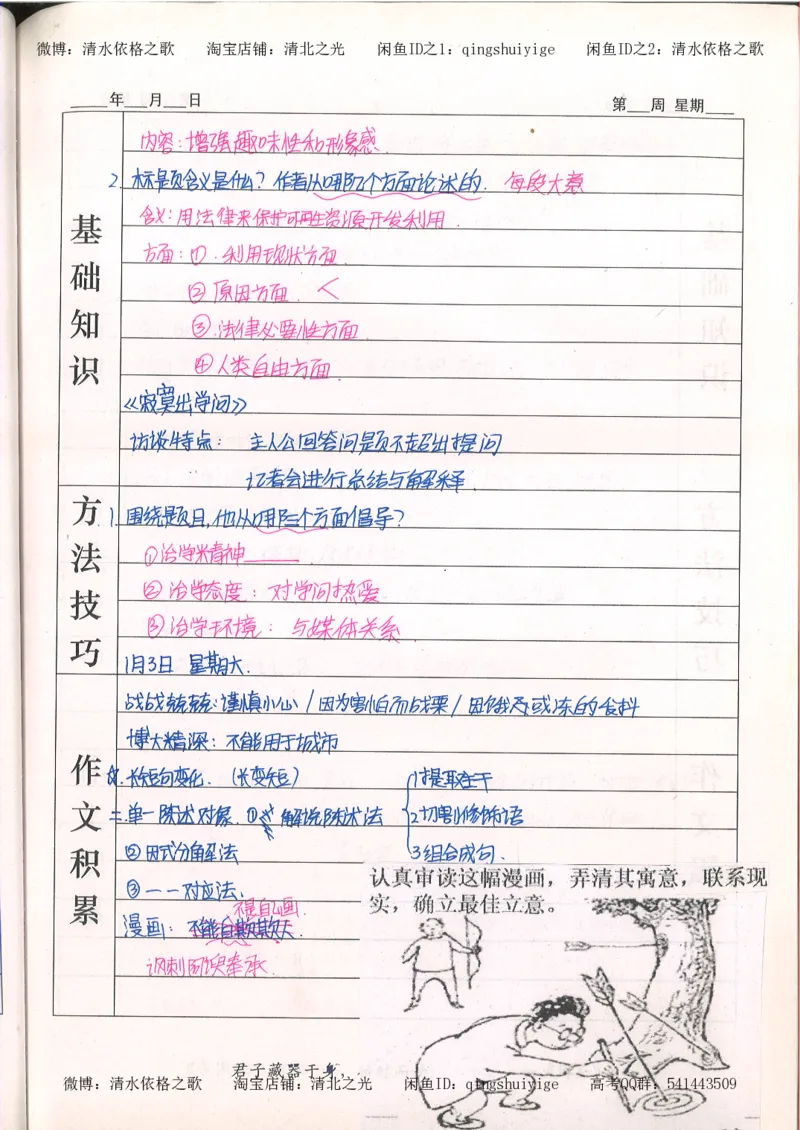 微博：清水依格之歌 淘宝店铺：清北之光 闲鱼ID之1：qingshuiyige 闲鱼ID之2：清水依格之歌
___年___月___日 第___周 星期___
基础知识
内容：增强趣味性和形象感
2. 标题含义是什么？作者从哪几个方面论述的. 每段大意
含义：用法律来保护可再生资源开发利用.
方面：①. 利用现状方面.
② 原因方面.
③ 法律必要性方面.
④ 人类自由方面.
《寂寞出学问》
访谈特点： 主人公回答问题不超出提问
记者会进行总结与解释.
方法技巧
1. 围绕题目，他从哪三个方面倡导？
①治学精神____
② 治学态度：对学问热爱
③ 治学环境：与媒体关系
1月3日 星期六.
作文积累
战战兢兢：谨慎小心/因为害怕而战栗/因饿或冻的发抖
博大精深：不能用于城市
长短句变化.（长变短） 1提取主干
二.单一陈述对象.① 解说陈述法 2切割修饰语
②因式分解法 3组合成句.
③一一对应法.
不是自画.
漫画：不能自欺欺人.
讽刺阿谀奉承.
认真审读这幅漫画，弄清其寓意，联系现
实，确立最佳立意。
君子藏器于身，
微博：清水依格之歌 淘宝店铺：清北之光 闲鱼ID：qingshuiyige 高考QQ群：541443509